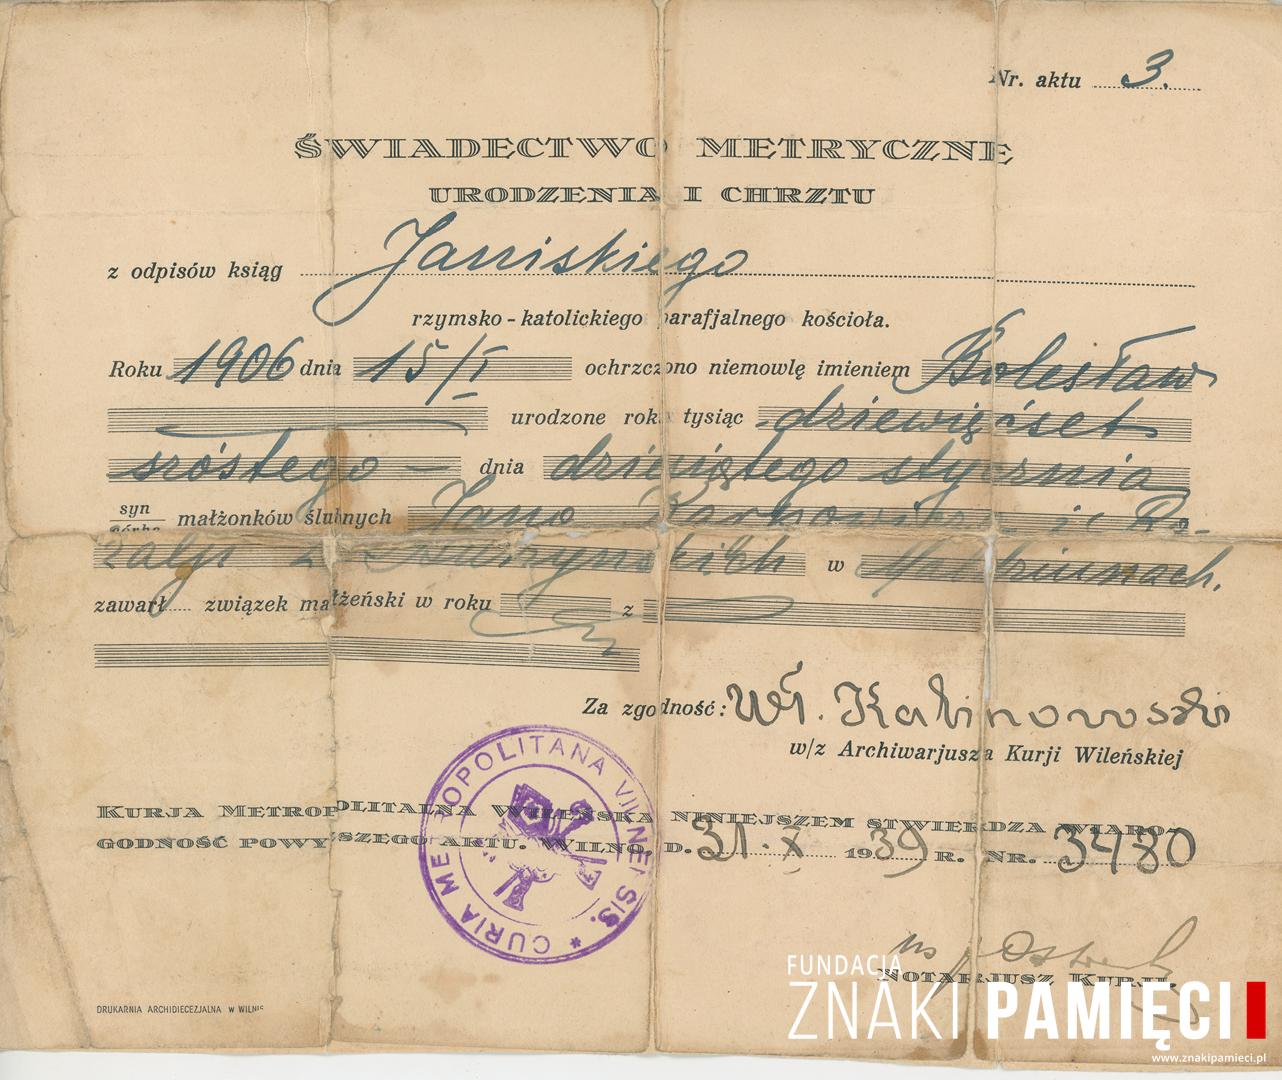 Nr. aktu 3.
ŚWIADECTWO METRYCZNE
URODZENIA I CHRZTU
z odpisów ksiąg Janiskiego
rzymsko-katolickiego parafjalnego kościoła.
Roku 1906 dnia 15/I ochrzczono niemowlę imieniem Bolesław
urodzone roku tysiąc dziewięćset
szóstego – dnia dziewiątego stycznia
syn
córka małżonków ślubnych Jana i Ro-
zalji z w
zawarł związek małżeński w roku z
Za zgodność: Wł. Kalinowski
w/z Archiwarjusza Kurji Wileńskiej
KURJA METROPOLITALNA WILEŃSKA NINIEJSZEM STWIERDZA WIARO-
GODNOŚĆ POWYŻSZEGO AKTU. WILNO, D. 31.X 1939 R. NR. 3480
CURIA METROPOLITANA VILNENSIS. *
NOTARJUSZ KURJI.
DRUKARNIA ARCHIDIECEZJALNA W WILNIE
FUNDACJA
ZNAKI PAMIĘCI
www.znakipamieci.pl